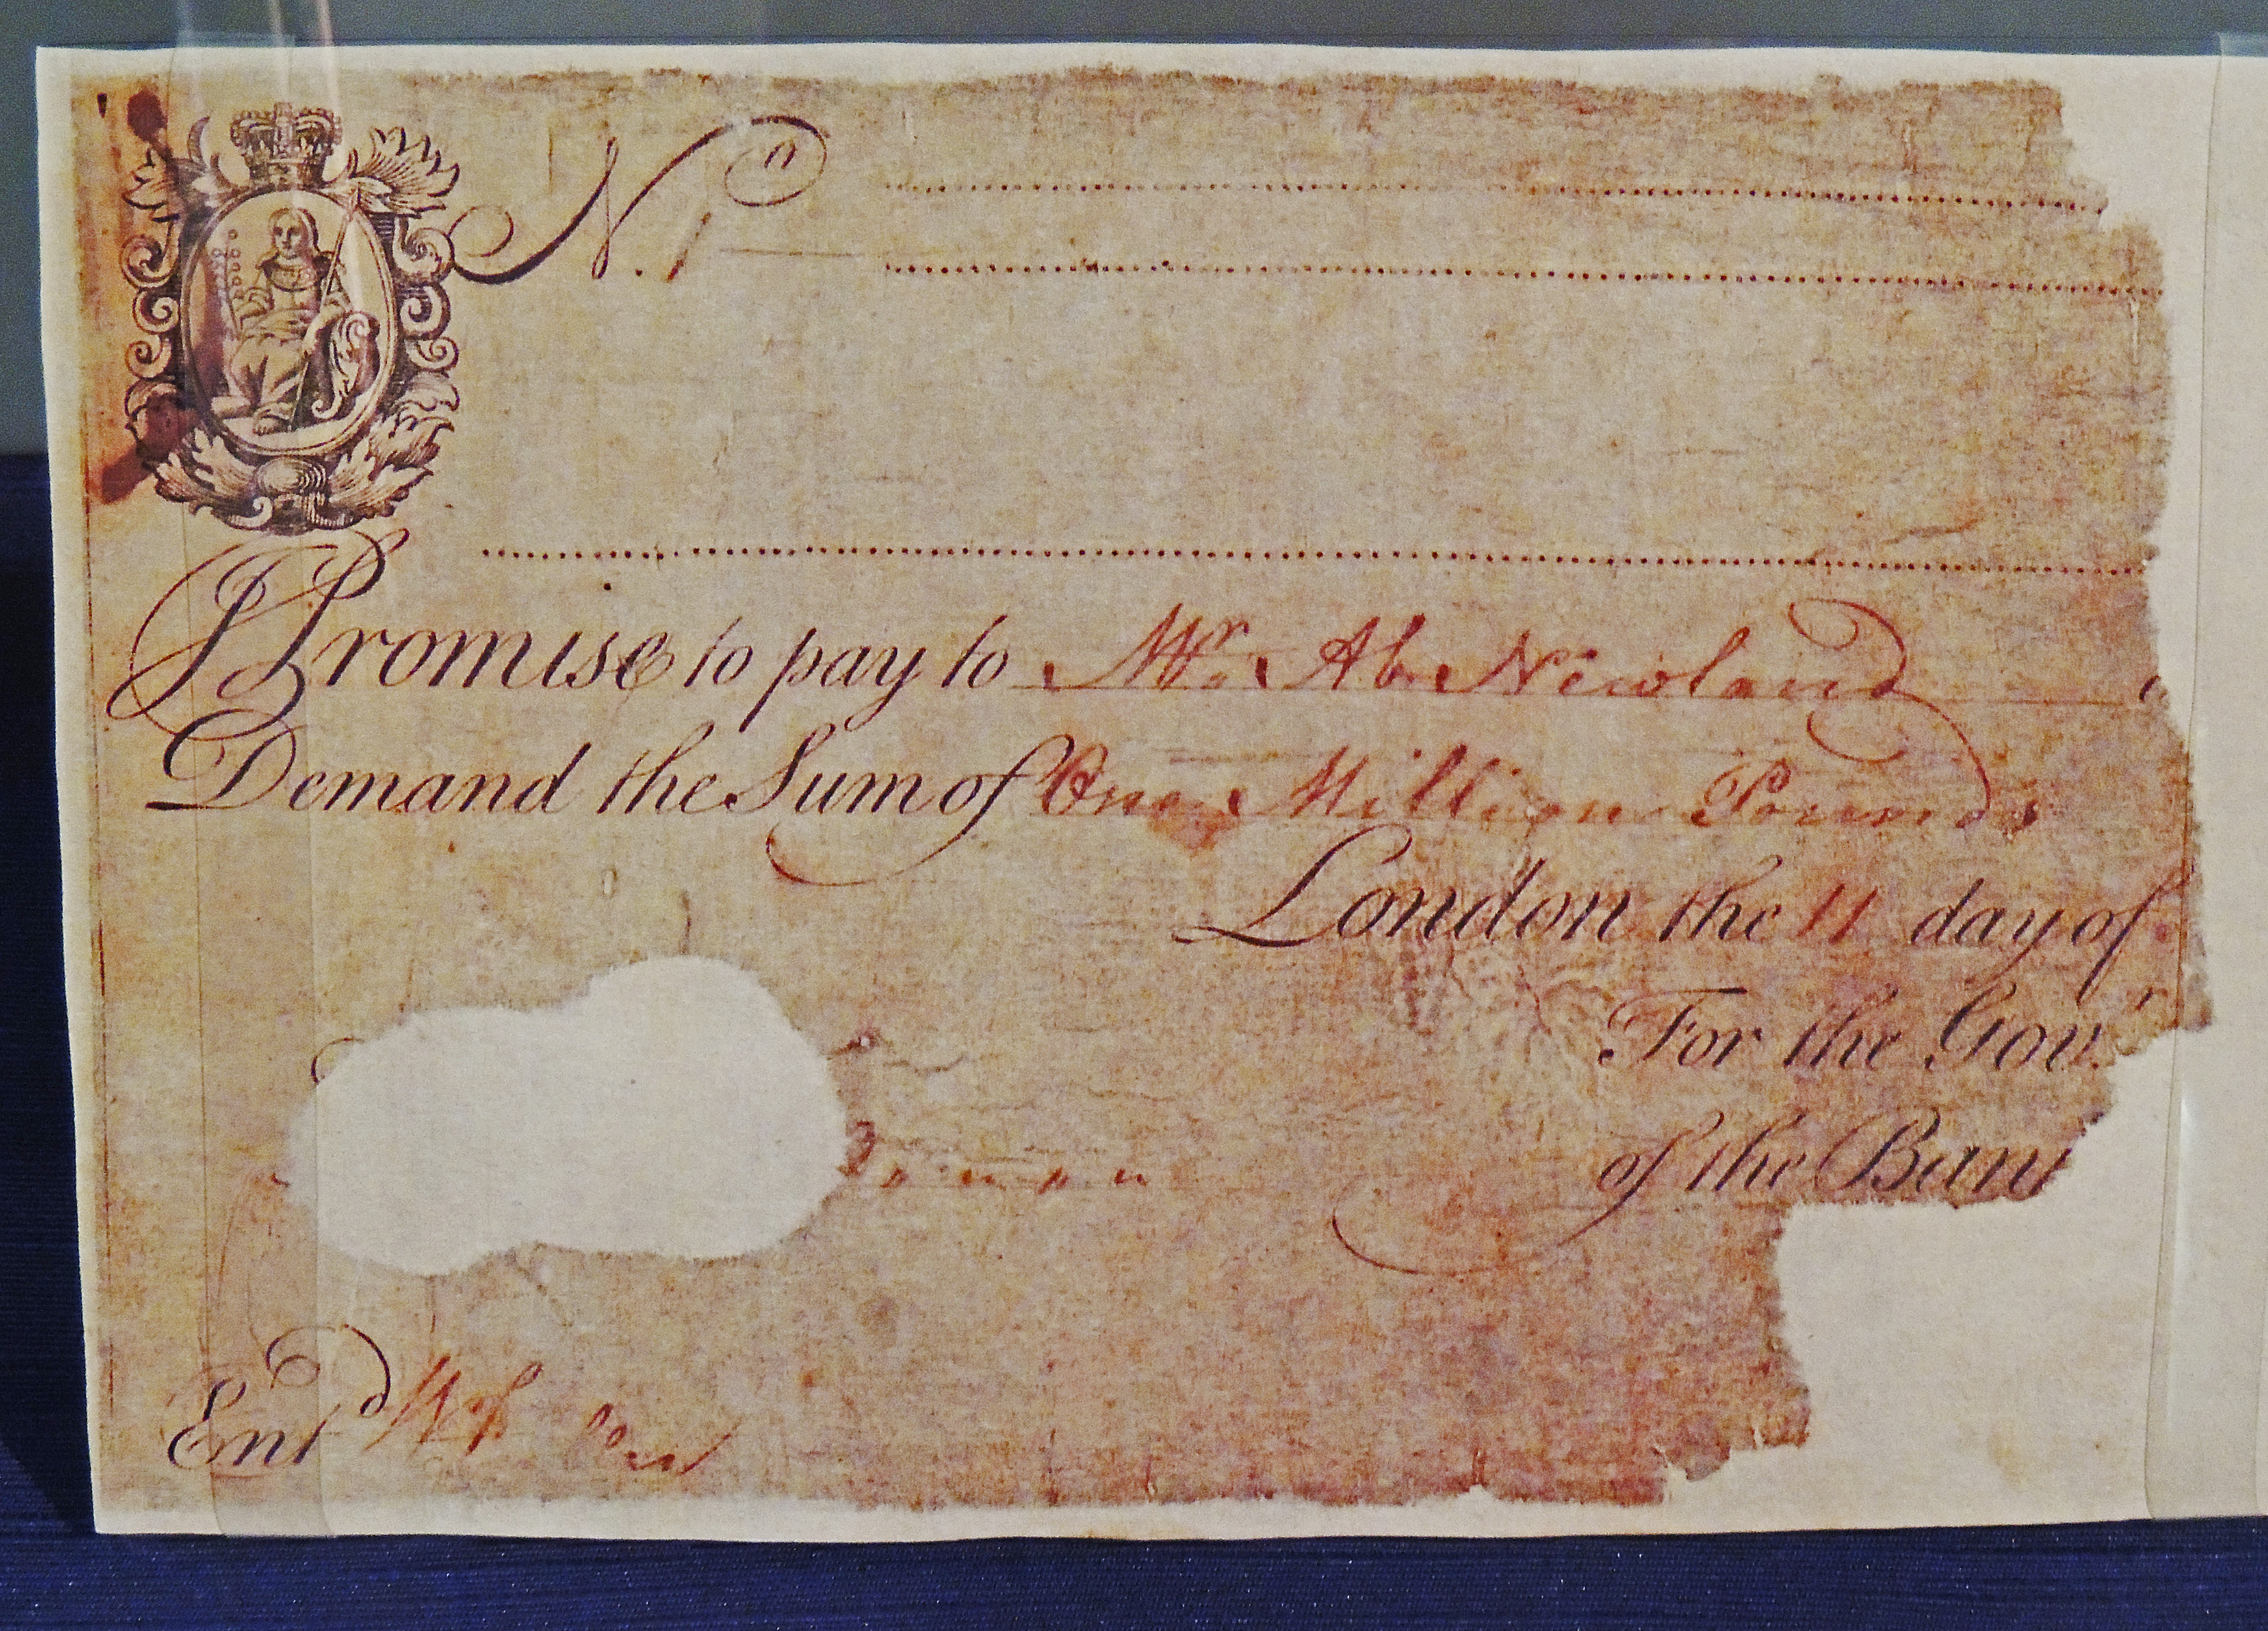 No. 1
I Promise to pay to Mr. Ab. Newland
Demand the Sum of One Million Pounds
London the 11 day of
For the Gov.r
of the Ban
Ent.d